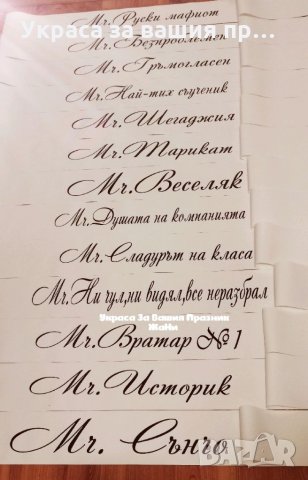 Украса за вашия пр...
Mr. Руски мафиот
Mr. Безпроблемен
Mr. Гръмогласен
Mr. Най-тих съученик
Mr. Шегаджия
Mr. Тарикат
Mr. Веселяк
Mr. Душата на компанията
Mr. Сладурът на класа
Mr. Ни чул,ни видял,все неразбрал
Украса За Вашия Празник
ЖаНи
Mr. Вратар №1
Mr. Историк
Mr. Сънчо
BAZAR